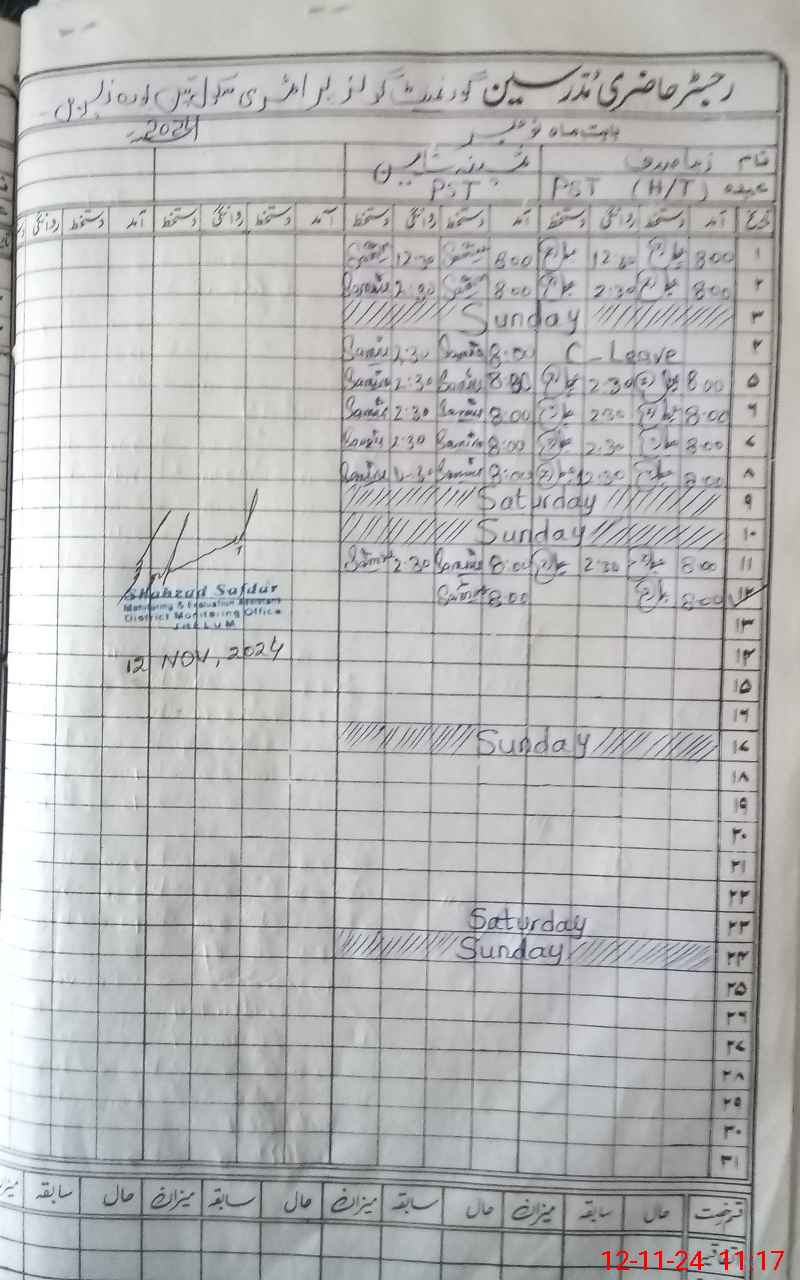 رجسٹر حاضری مدرسین گورنمنٹ گرلز پرائمری سکول
بابت ماہ نومبر 2024ء
نام
عہدہ PST (H/T) PST
تاریخ آمد دستخط روانگی دستخط آمد دستخط روانگی دستخط آمد دستخط روانگی دستخط آمد دستخط روانگی
۱ 8:00 12:30 8:00 12:30
۲ 8:00 2:30 8:00 2:30
۳ Sunday
۴ C-Leave 8:00 2:30
۵ 8:00 2:30 8:00 2:30
۶ 8:00 2:30 8:00 2:30
۷ 8:00 2:30 8:00 2:30
۸ 8:00 12:30 8:00
۹ Saturday
۱۰ Sunday
۱۱ 8:00 2:30 8:00 2:30
۱۲ 8:00 8:00
Shahzad Safdar
Monitoring & Evaluation Assistant
District Monitoring Office
JHELUM
12 NOV, 2024
۱۳
۱۴
۱۵
۱۶
۱۷ Sunday
۱۸
۱۹
۲۰
۲۱
۲۲
۲۳ Saturday
۲۴ Sunday
۲۵
۲۶
۲۷
۲۸
۲۹
۳۰
۳۱
قسم رخصت حال سابقہ میزان حال سابقہ میزان حال سابقہ میزان حال سابقہ
12-11-24 11:17